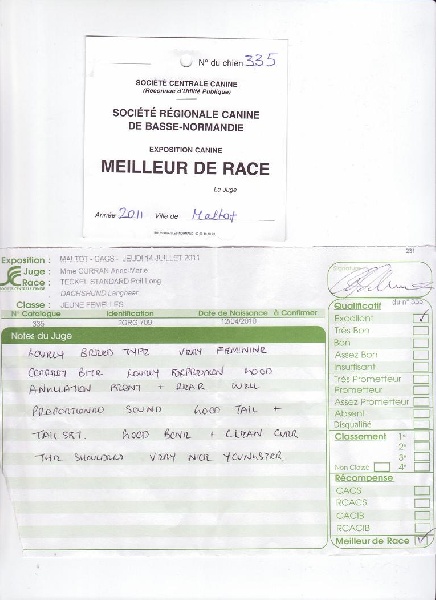 N° du chien 335
SOCIÉTÉ CENTRALE CANINE
(Reconnue d'Utilité Publique)
SOCIÉTÉ RÉGIONALE CANINE
DE BASSE-NORMANDIE
EXPOSITION CANINE
MEILLEUR DE RACE
Le Juge
Année 2011 Ville de Maltot
Exposition : MALTOT - CACS - JEUDI 14 JUILLET 2011
Juge : Mme CURRAN Anne-Marie
Race : TECKEL STANDARD Poil Long
DACHSHUND Langhaar
Classe : JEUNE FEMELLES
N° Catalogue Identification Date de Naissance À Confirmer
335 12/04/2010
Notes du Juge
LOVELY BREED TYPE VERY FEMININE
CORRECT BITE LOVELY EXPRESSION GOOD
ANGULATION FRONT + REAR WELL
PROPORTIONED SOUND GOOD TAIL +
TAIL SET. GOOD BONE + CLEAN OVER
THE SHOULDERS VERY NICE YOUNGSTER
Signature
Qualificatif du n° 335
Excellent
Très Bon
Bon
Assez Bon
Insuffisant
Très Prometteur
Prometteur
Assez Prometteur
Absent
Disqualifié
Classement 1er
2e
3e
Non Classé 4e
Récompense
CACS
RCACS
CACIB
RCACIB
Meilleur de Race